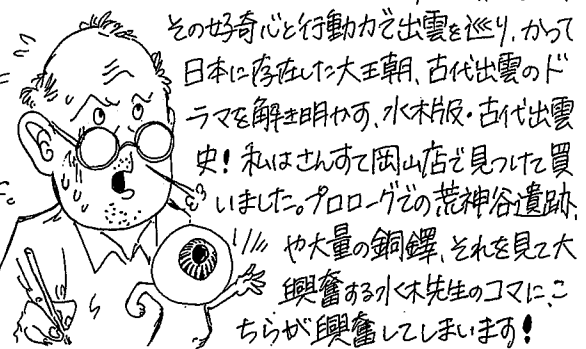 その好奇心と行動力で出雲を巡り、かつて
日本に存在した大王朝、古代出雲のド
ラマを解き明かす、水木版・古代出雲
史！私はさんすて岡山店で見つけて買
いました。プロローグでの荒神谷遺跡、
や大量の銅鐸、それを見て大
興奮する水木先生のコマに、こ
ちらが興奮してしまいます！